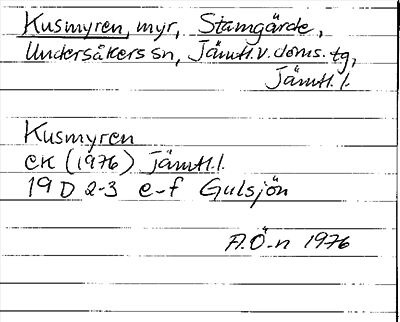 Kusmyren, myr, Stamgärde,
Undersåkers sn, Jämtl. v. doms. tg,
Jämtl. l.
Kusmyren
EK (1976) Jämtl. l.
19 D 2-3 e-f Gulsjön
A.Ö-n 1976